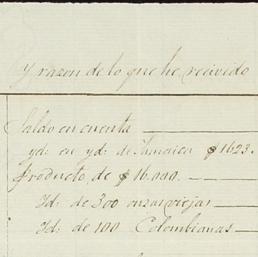 y razon de lo que he recivedo
Saldo en cuenta
yd: en yd: de Jamaica $1623.
Producto, de $16.000.
Yd: de 300 onzas viejas
Yd: de 100 Colombianas